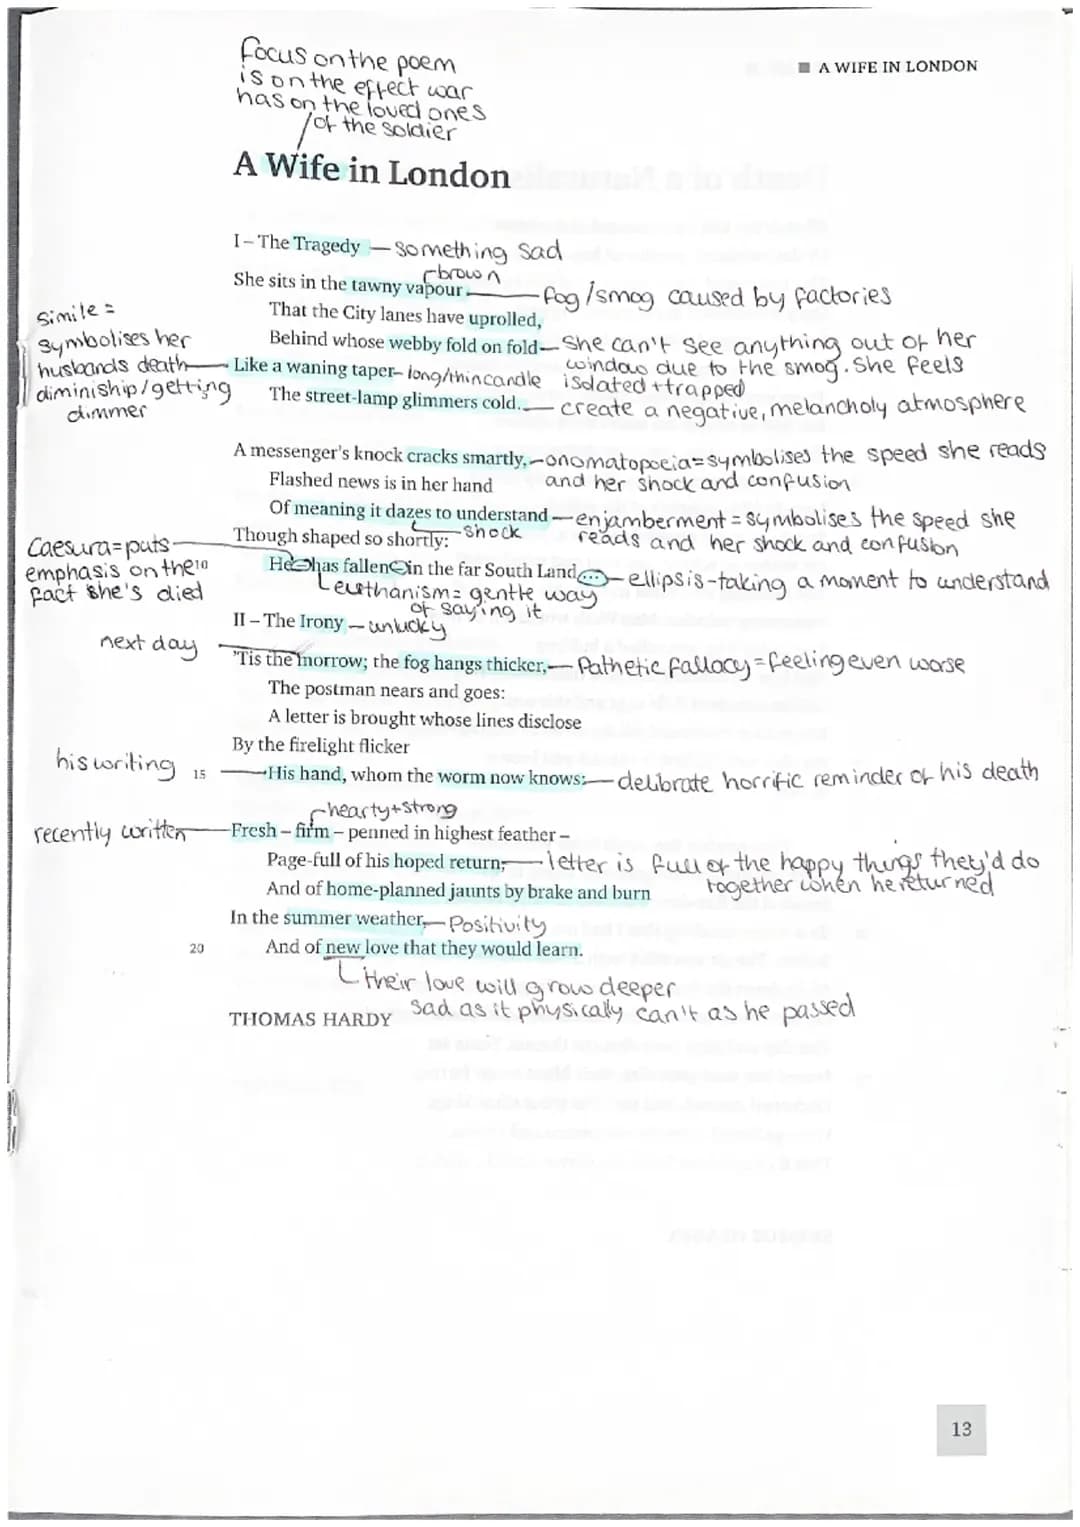 focus on the poem
is on the effect war
has on the loved ones
of the soldier
■ A WIFE IN LONDON
A Wife in London
I – The Tragedy – something sad
brown
She sits in the tawny vapour – fog/smog caused by factories
That the City lanes have uprolled,
Behind whose webby fold on fold – she can't see anything out of her
window due to the smog. She feels
isolated + trapped
simile =
symbolises her
husbands death
diminiship/getting
dimmer
Like a waning taper – long/thin candle
The street-lamp glimmers cold. – create a negative, melancholy atmosphere
A messenger's knock cracks smartly, – onomatopoeia = symbolises the speed she reads
and her shock and confusion
Flashed news is in her hand
Of meaning it dazes to understand – enjamberment = symbolises the speed she
reads and her shock and confusion
shock
Though shaped so shortly:
Caesura = puts
emphasis on the
fact she's died
10
He – has fallen – in the far South Land... – ellipsis - taking a moment to understand
euthanism = gentle way
of saying it
II – The Irony – unlucky
next day
'Tis the morrow; the fog hangs thicker, – Pathetic fallacy = feeling even worse
The postman nears and goes:
A letter is brought whose lines disclose
By the firelight flicker
his writing
15 His hand, whom the worm now knows: – delibrate horrific reminder of his death
hearty + strong
recently written
Fresh – firm – penned in highest feather –
Page-full of his hoped return, – letter is full of the happy things they'd do
together when he returned
And of home-planned jaunts by brake and burn
In the summer weather, – Positivity
20 And of new love that they would learn.
their love will grow deeper
sad as it physically can't as he passed
THOMAS HARDY
13